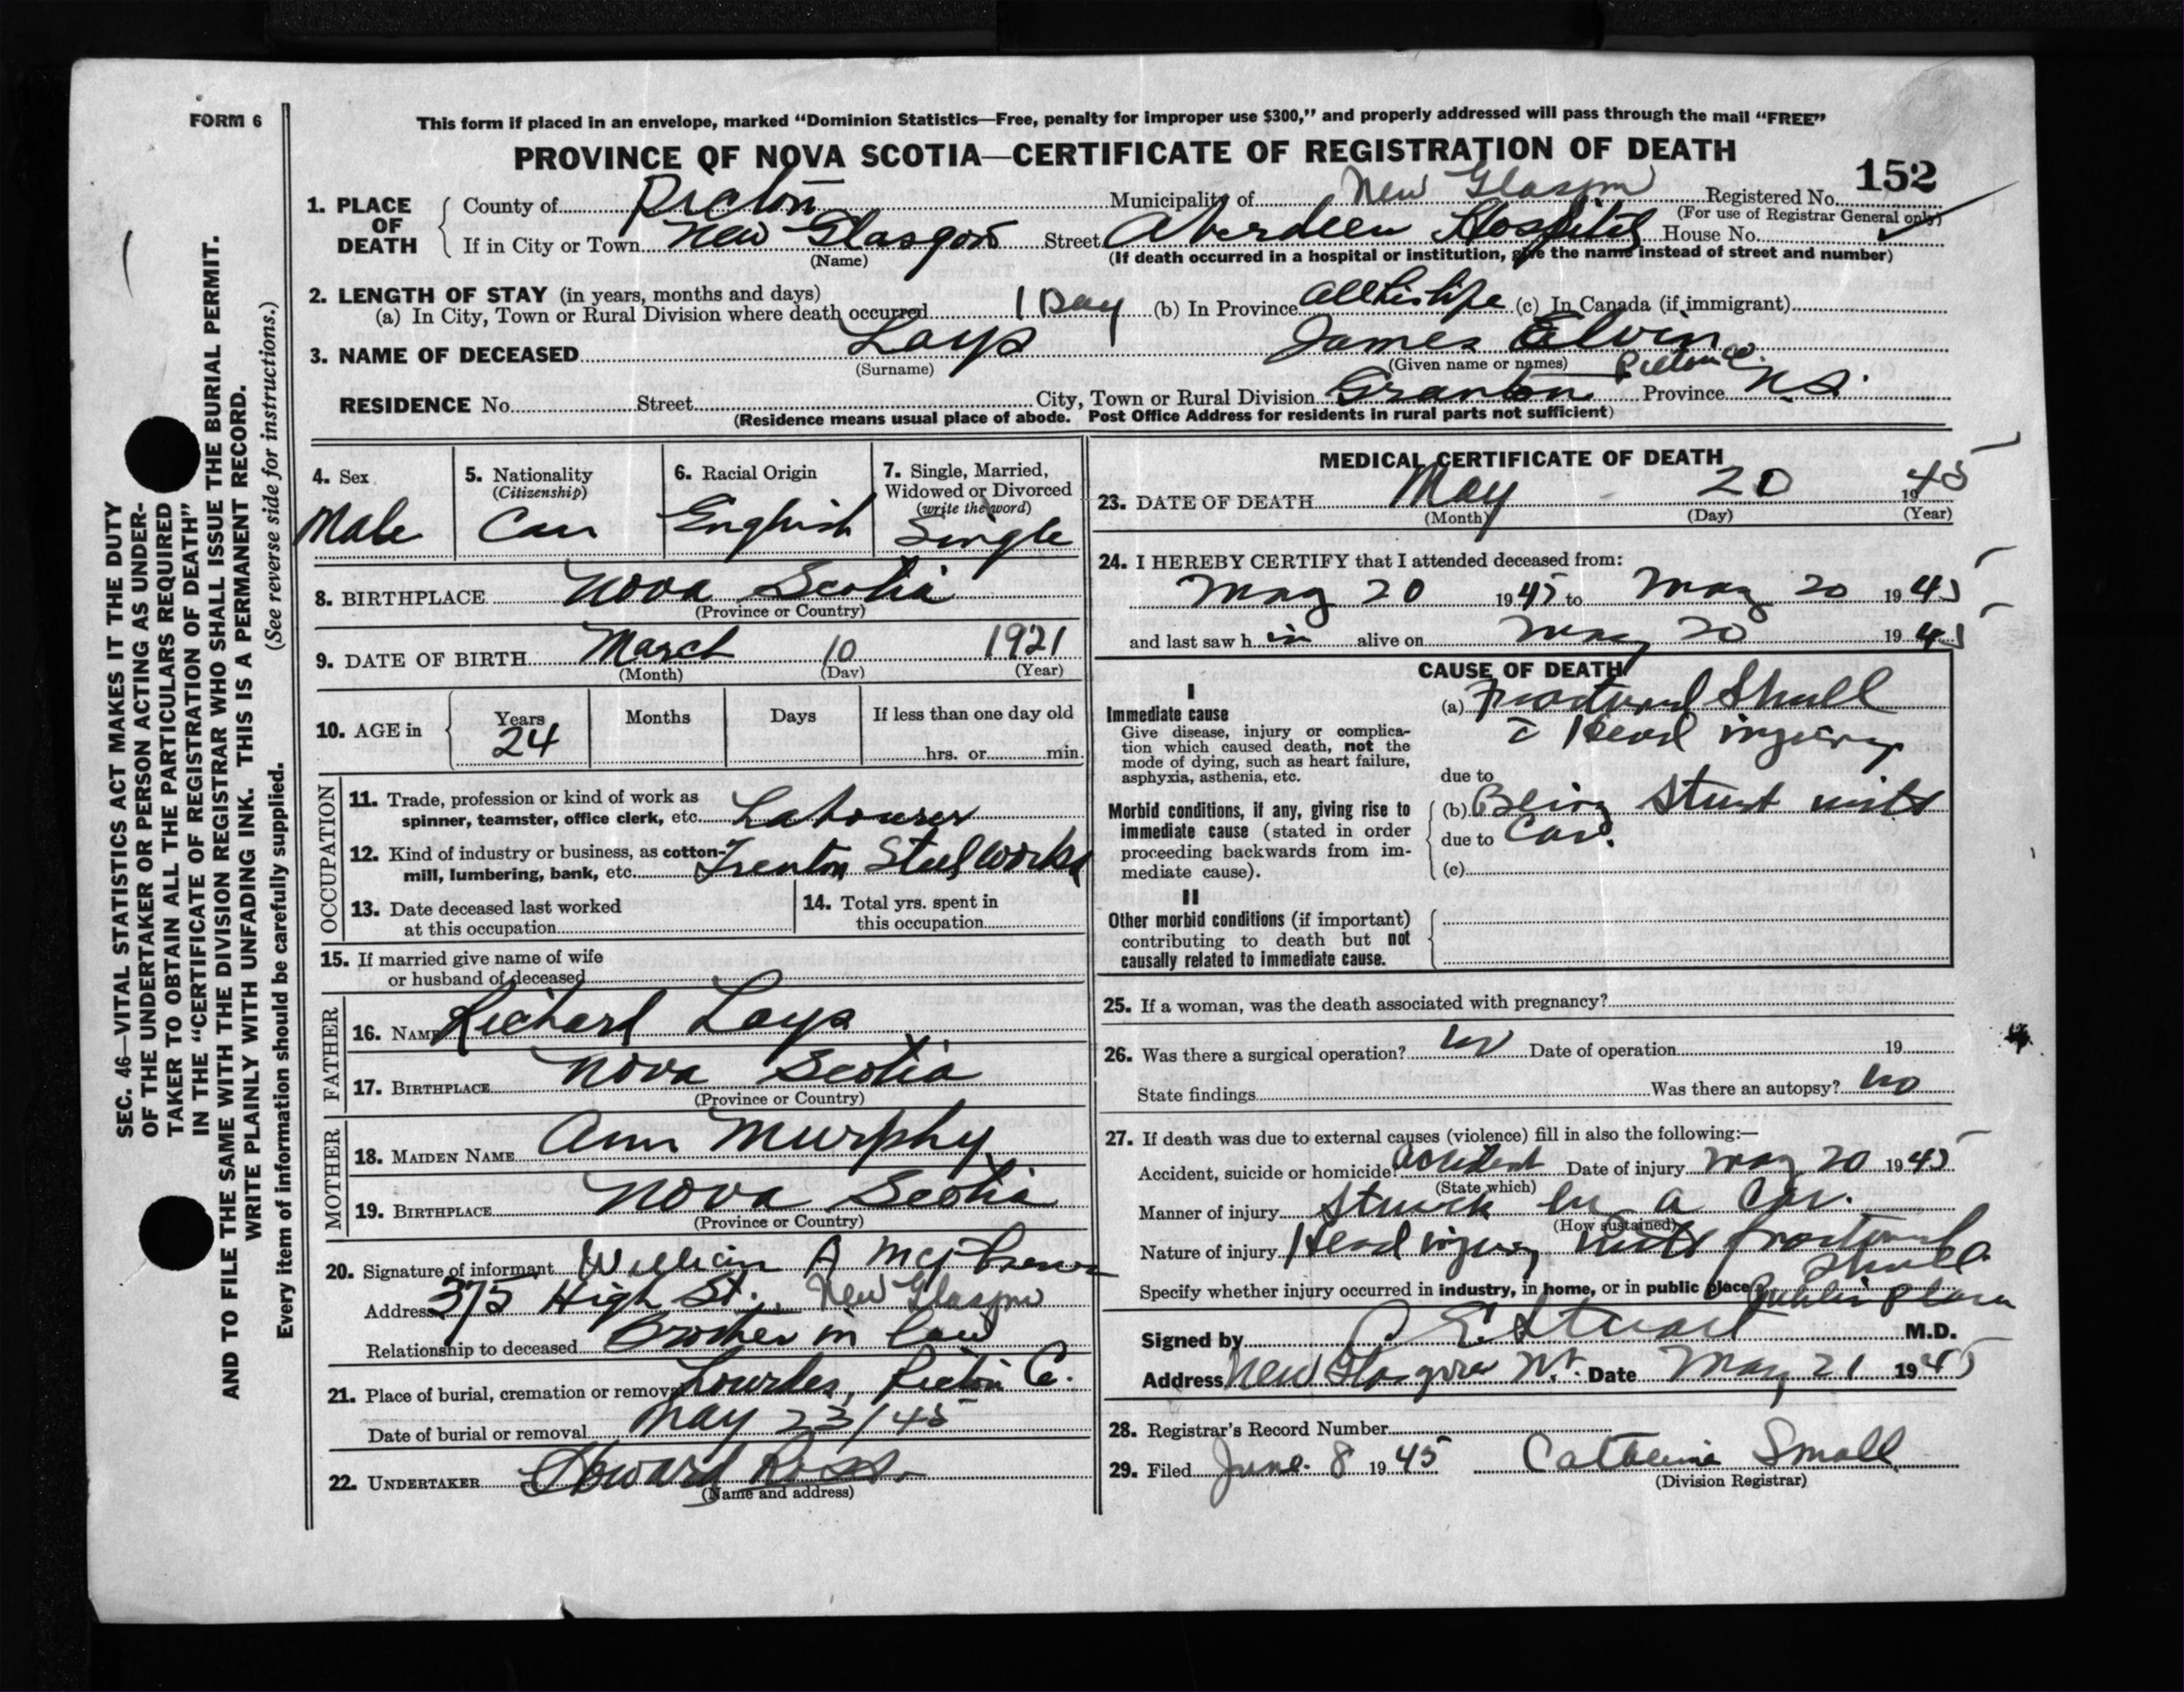 FORM 6
This form if placed in an envelope, marked “Dominion Statistics—Free, penalty for improper use $300,” and properly addressed will pass through the mail “FREE”
PROVINCE OF NOVA SCOTIA—CERTIFICATE OF REGISTRATION OF DEATH
152
1. PLACE OF DEATH
County of Pictou Municipality of New Glasgow Registered No.
(For use of Registrar General only)
If in City or Town New Glasgow Street Aberdeen Hospital House No.
(Name) (If death occurred in a hospital or institution, give the name instead of street and number)
2. LENGTH OF STAY (in years, months and days)
(a) In City, Town or Rural Division where death occurred 1 Day (b) In Province all his life (c) In Canada (if immigrant)
3. NAME OF DECEASED Lays James Elvin
(Surname) (Given name or names)
Pictou Co.
RESIDENCE No. Street City, Town or Rural Division Granton Province N S.
(Residence means usual place of abode. Post Office Address for residents in rural parts not sufficient)
4. Sex
Male
5. Nationality
(Citizenship)
Can
6. Racial Origin
English
7. Single, Married,
Widowed or Divorced
(write the word)
Single
8. BIRTHPLACE Nova Scotia
(Province or Country)
9. DATE OF BIRTH March 10 1921
(Month) (Day) (Year)
10. AGE in
Years Months Days If less than one day old
24
hrs. or min.
OCCUPATION
11. Trade, profession or kind of work as
spinner, teamster, office clerk, etc. Labourer
12. Kind of industry or business, as cotton-
mill, lumbering, bank, etc. Trenton Steel Works
13. Date deceased last worked
at this occupation
14. Total yrs. spent in
this occupation
15. If married give name of wife
or husband of deceased
FATHER
16. NAME Richard Lays
17. BIRTHPLACE Nova Scotia
(Province or Country)
MOTHER
18. MAIDEN NAME Ann Murphy
19. BIRTHPLACE Nova Scotia
(Province or Country)
20. Signature of informant William A
Address 375 High St. New Glasgow
Relationship to deceased Brother in law
21. Place of burial, cremation or removal Lourdes, Pictou C.
Date of burial or removal May 23/45
22. UNDERTAKER Howard
(Name and address)
MEDICAL CERTIFICATE OF DEATH
23. DATE OF DEATH May 20 1945
(Month) (Day) (Year)
24. I HEREBY CERTIFY that I attended deceased from:
May 20 1945 to May 20 1945
and last saw h im alive on May 20 1945
CAUSE OF DEATH
I
Immediate cause
Give disease, injury or complica-
tion which caused death, not the
mode of dying, such as heart failure,
asphyxia, asthenia, etc.
(a) Fractured Skull
c̄ Head injury
due to
Morbid conditions, if any, giving rise to
immediate cause (stated in order
proceeding backwards from im-
mediate cause).
(b) Being Struck with
due to Car.
(c)
II
Other morbid conditions (if important)
contributing to death but not
causally related to immediate cause.
25. If a woman, was the death associated with pregnancy?
26. Was there a surgical operation? no Date of operation 19
State findings Was there an autopsy? no
27. If death was due to external causes (violence) fill in also the following:—
Accident, suicide or homicide? accident Date of injury May 20 1945
(State which)
Manner of injury Struck by a Car.
(How sustained)
Nature of injury Head injury with fractured
Skull
Specify whether injury occurred in industry, in home, or in public place Public Place
Signed by C E Stuart M.D.
Address New Glasgow N.S. Date May 21 1945
28. Registrar's Record Number
29. Filed June 8 1945 Catherine Small
(Division Registrar)
SEC. 46—VITAL STATISTICS ACT MAKES IT THE DUTY
OF THE UNDERTAKER OR PERSON ACTING AS UNDER-
TAKER TO OBTAIN ALL THE PARTICULARS REQUIRED
IN THE “CERTIFICATE OF REGISTRATION OF DEATH”
AND TO FILE THE SAME WITH THE DIVISION REGISTRAR WHO SHALL ISSUE THE BURIAL PERMIT.
WRITE PLAINLY WITH UNFADING INK. THIS IS A PERMANENT RECORD.
(See reverse side for instructions.)
Every item of information should be carefully supplied.